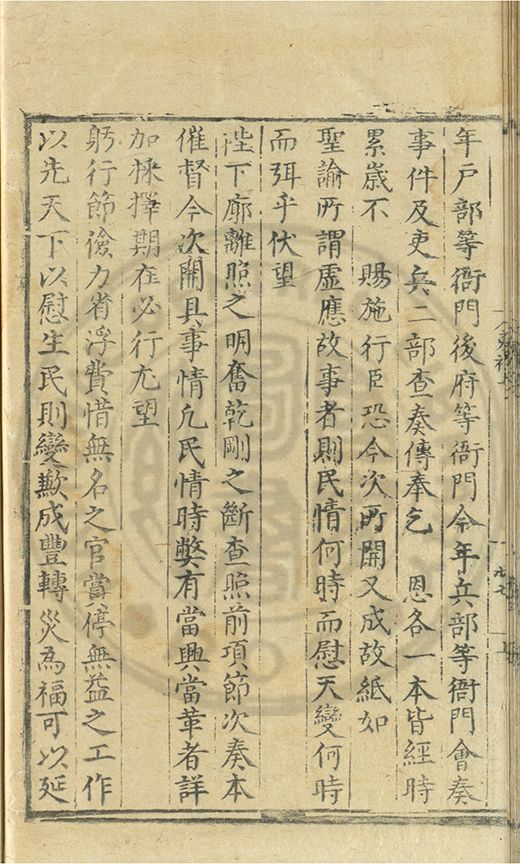 年戶部等衙門後府等衙門今年兵部等衙門會奏
事件及吏兵二部查奏傳奉乞　恩各一本皆經時
累歲不　賜施行臣恐今次所開又成故紙如
聖諭所謂虛應故事者則民情何時而慰天變何時
而弭乎伏望
陛下廓離照之明奮乾剛之斷查照前項節次奏本
催督今次開具事情凡民情時弊有當興當革者詳
加採擇期在必行尤望
躬行節儉力省浮費惜無名之官賞停無益之工作
以先天下以慰生民則變歉成豐轉災為福可以延